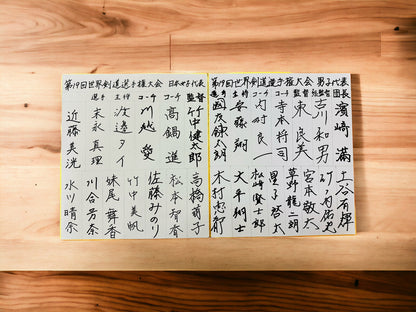 第19回世界剣道選手権大会 男子代表
団長 濱崎 満
総監督 古川 和男
監督 東 良美
コーチ 寺本 将司
コーチ 内村 良一
主将 安藤 翔
選手
土谷 有輝
竹ノ内 佑也
宮本 敬大
草野 龍二朗
星子 啓太
松﨑 賢士郎
大平 翔士
木村 恵都
第19回世界剣道選手権大会 日本女子代表
監督 竹中 健太郎
コーチ 高鍋 進
コーチ 川越 愛
主将
選手 末永 真理
近藤 美洸
高橋 萌子
松本 智香
佐藤 みのり
竹中 美帆
妹尾 舞香
川合 芳奈
水川 晴奈